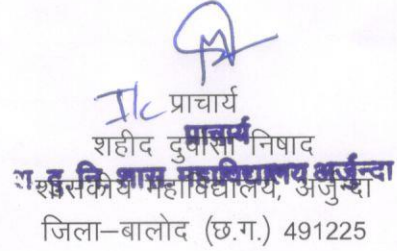 I/c प्राचार्य
शहीद दुर्वासा निषाद
प्राचार्य
श. दु. नि. शास. महाविद्यालय अर्जुन्दा
शासकीय महाविद्यालय, अर्जुन्दा
जिला–बालोद (छ.ग.) 491225